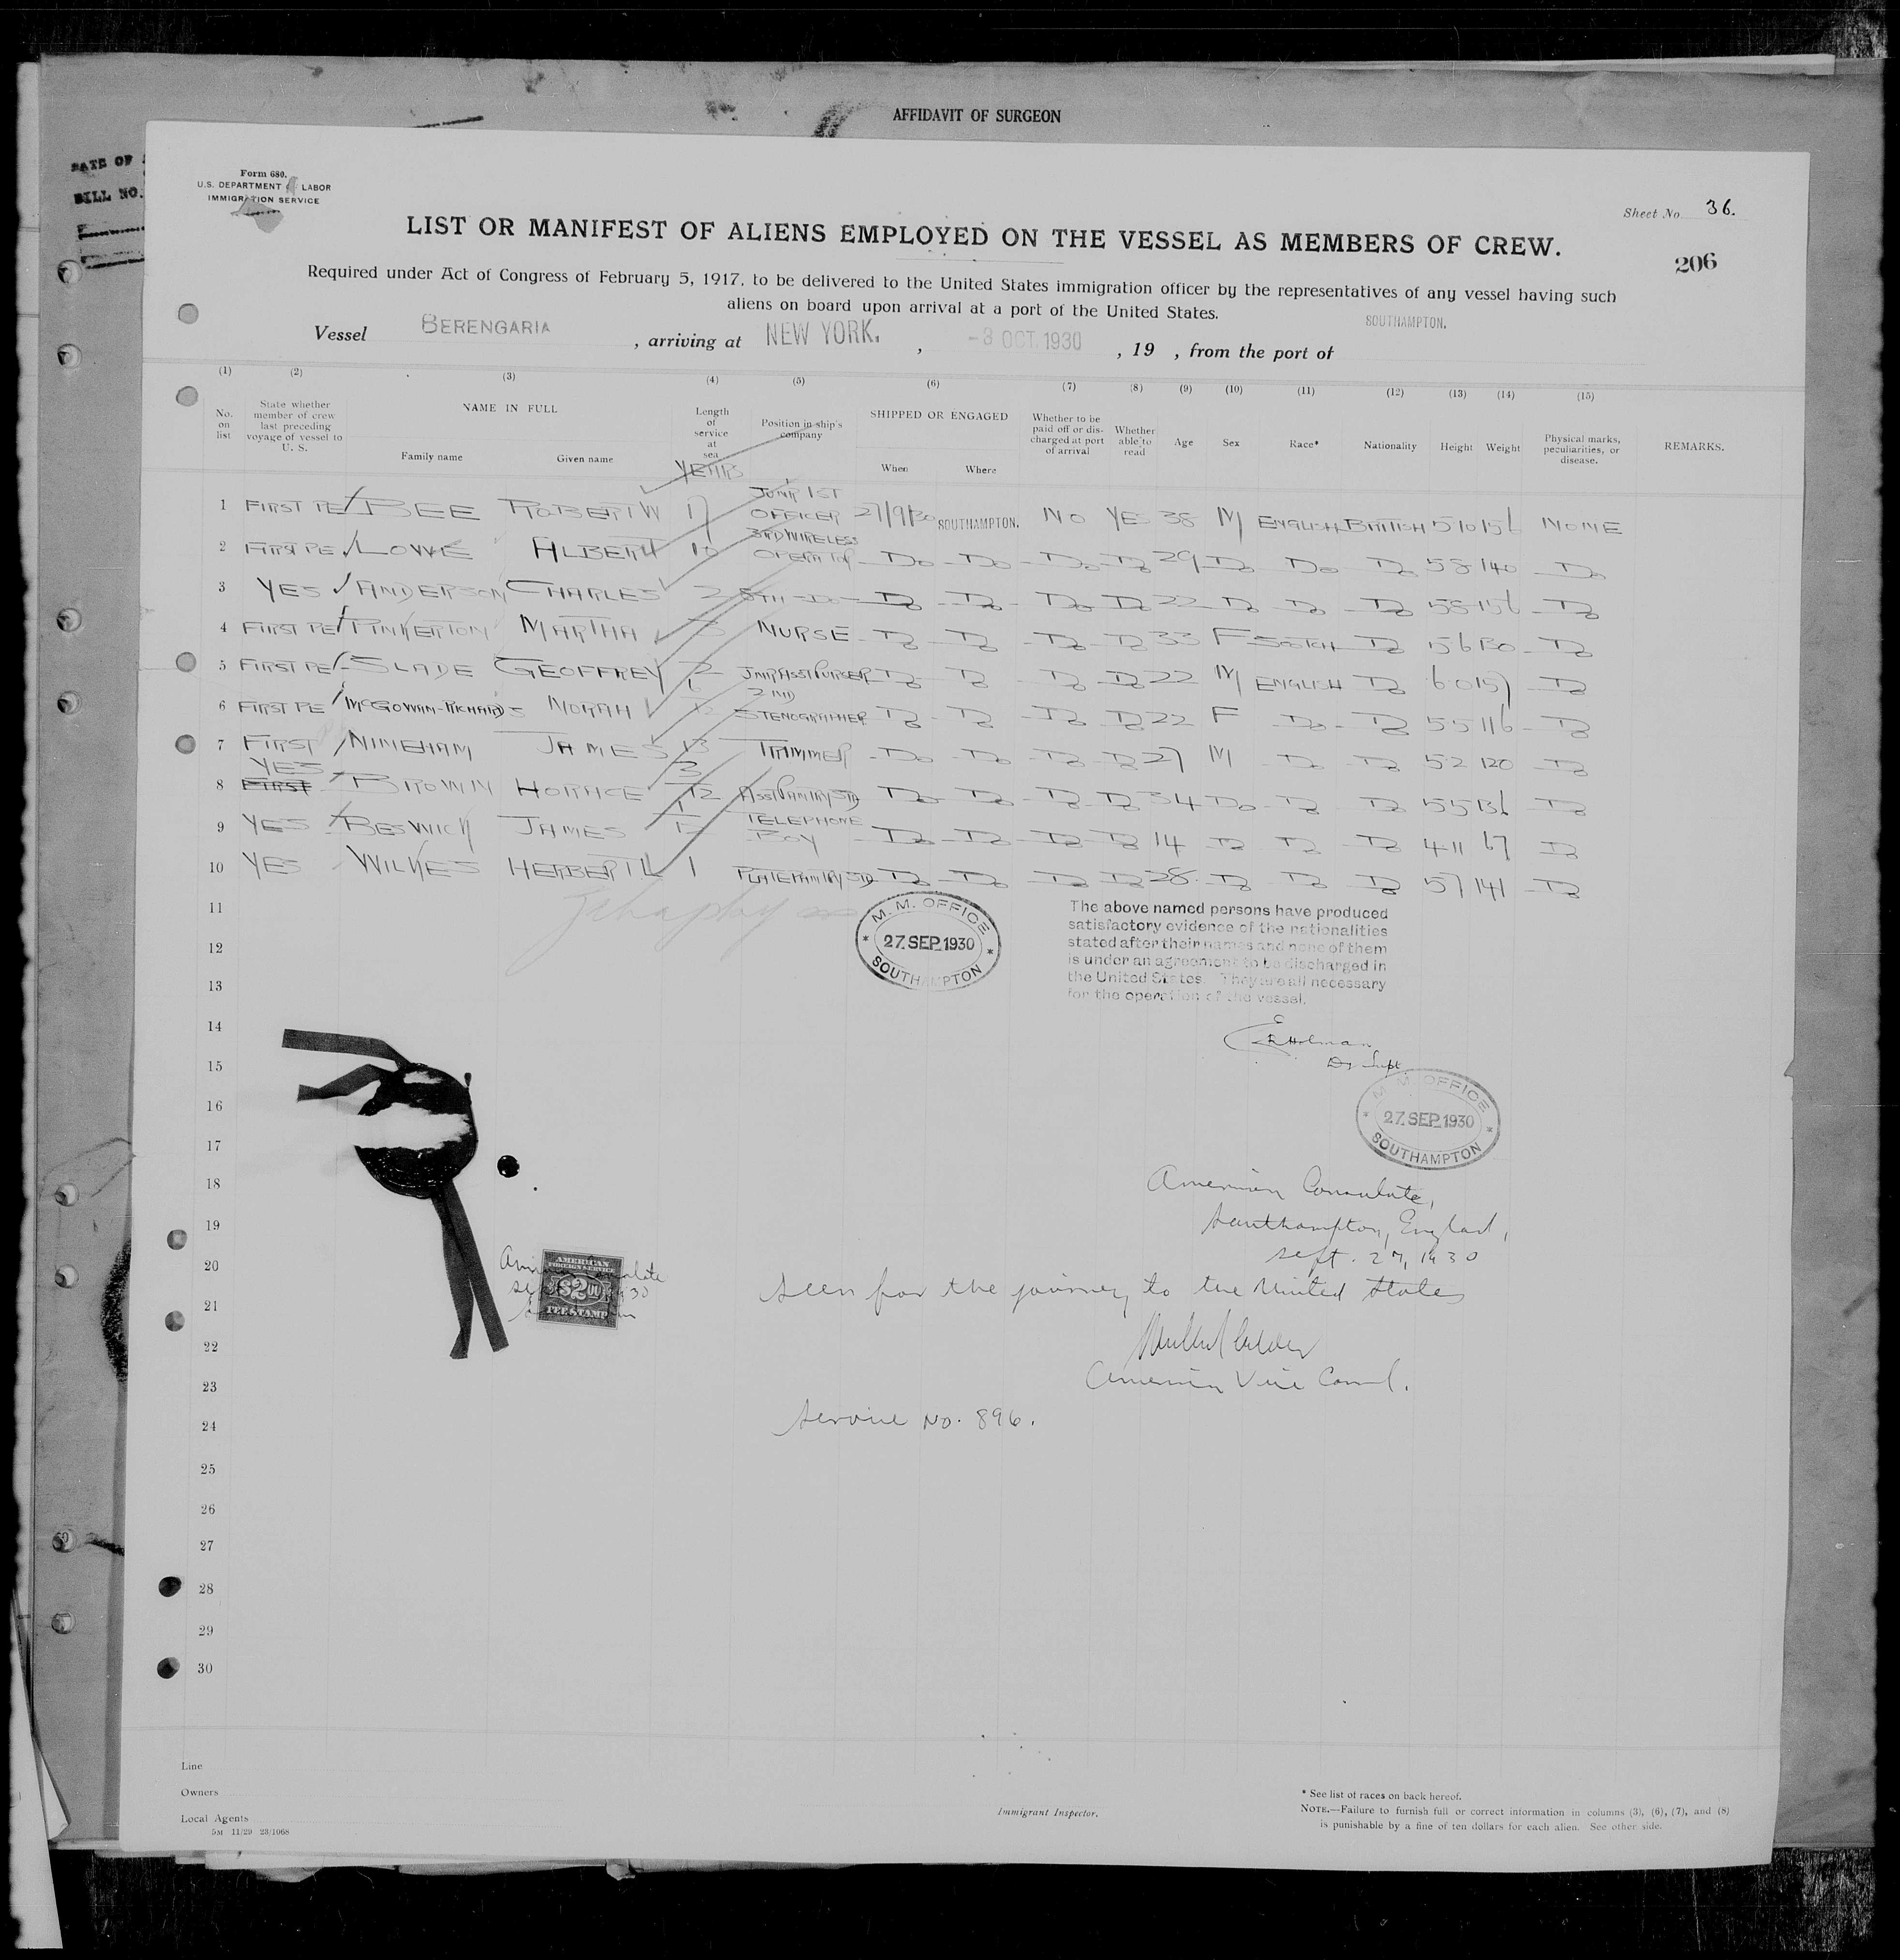 AFFIDAVIT OF SURGEON
DATE OF
BILL NO.
Form 680.
U.S. DEPARTMENT LABOR
IMMIGRATION SERVICE
Sheet No. 36.
LIST OR MANIFEST OF ALIENS EMPLOYED ON THE VESSEL AS MEMBERS OF CREW.
206
Required under Act of Congress of February 5, 1917, to be delivered to the United States immigration officer by the representatives of any vessel having such
aliens on board upon arrival at a port of the United States.
Vessel BERENGARIA , arriving at NEW YORK. , -3 OCT. 1930 , 19 , from the port of SOUTHAMPTON.
(1) (2) (3) (4) (5) (6) (7) (8) (9) (10) (11) (12) (13) (14) (15)
No. on list
State whether member of crew last preceding voyage of vessel to U. S.
NAME IN FULL
Family name Given name
Length of service at sea
YEARS
Position in ship's company
SHIPPED OR ENGAGED
When Where
Whether to be paid off or discharged at port of arrival
Whether able to read
Age Sex Race* Nationality Height Weight
Physical marks, peculiarities, or disease.
REMARKS.
1 FIRST PE BEE ROBERT W 17 JUNR 1ST OFFICER 27/9/30 SOUTHAMPTON. NO YES 38 M ENGLISH BRITISH 5 10 156 NONE
2 FIRST PE LOWE ALBERT 10 3RD WIRELESS OPERATOR Do Do Do Do 29 Do Do Do 5 8 140 Do
3 YES ANDERSON CHARLES 2 5TH Do Do Do Do Do 22 Do Do Do 5 8 156 Do
4 FIRST PE PINKERTON MARTHA NURSE Do Do Do Do 33 F SCOTCH Do 5 6 130 Do
5 FIRST PE SLADE GEOFFREY 2 JNR ASST PURSER Do Do Do Do 22 M ENGLISH Do 6 0 157 Do
6 FIRST PE McGOWAN-RICHARDS NORAH 2ND STENOGRAPHER Do Do Do Do 22 F Do Do 5 5 116 Do
7 FIRST NINEHAM JAMES 13 TRIMMER Do Do Do Do 27 M Do Do 5 2 120 Do
8 YES FIRST BROWN HORACE 3/12 ASST PANTRY STD Do Do Do Do 34 Do Do Do 5 5 136 Do
9 YES BESWICK JAMES TELEPHONE BOY Do Do Do Do 14 Do Do Do 4 11 67 Do
10 YES WILKES HERBERT L 1 PLATE PANTRY STD Do Do Do Do 28 Do Do Do 5 7 141 Do
11
12
13
14
15
16
17
18
19
20
21
22
23
24
25
26
27
28
29
30
M. M. OFFICE
27 SEP 1930
SOUTHAMPTON
The above named persons have produced
satisfactory evidence of the nationalities
stated after their names and none of them
is under an agreement to be discharged in
the United States. They are all necessary
for the operation of the vessel.
Holman
Dy Supt.
M. M. OFFICE
27 SEP 1930
SOUTHAMPTON
American Consulate,
Southampton, England,
Sept. 27, 1930
Seen for the journey to the United States
American Vice Consul.
Service No. 896.
AMERICAN
FOREIGN SERVICE
$2.00
FEE STAMP
Line
Owners
Local Agents
5M 11/29 23/1068
Immigrant Inspector.
* See list of races on back hereof.
NOTE.—Failure to furnish full or correct information in columns (3), (6), (7), and (8)
is punishable by a fine of ten dollars for each alien. See other side.